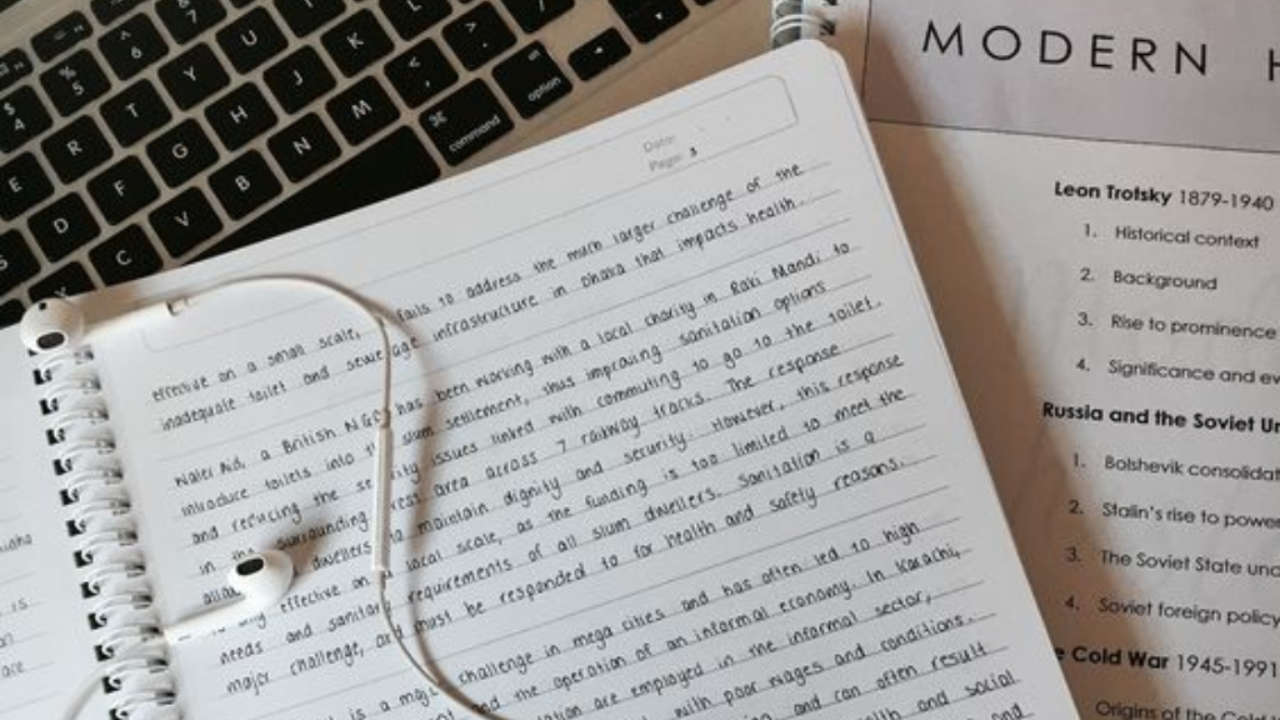 7
^ 6
U
L
> .
% 5
Y
K
< ,
alt option
$ 4
T
J
M
⌘ command
R
H
N
E
G
B
F
V
D
C
S
X
Date:
Page: 3
effective on a small scale, fails to address the much larger challenge of the
inadequate toilet and sewerage infrastructure in Dhaka that impacts health.
Water Aid, a British NGO, has been working with a local charity in Raki Mandi to
introduce toilets into slum settlement, thus improving sanitation options
and reducing the security issues linked with commuting to go to the toilet.
in the surrounding area across 7 railway tracks. The response
dwellers to maintain dignity and security. However, this response
effective on a local scale, as the funding is too limited to meet the
needs and sanitary requirements of all slum dwellers. Sanitation is a
major challenge, and must be responded to for health and safety reasons.
is a major challenge in mega cities and has often led to high
and the operation of an informal economy. In Karachi,
are employed in the informal sector,
with poor wages and conditions.
and can often result
and social
and
is
MODERN H
Leon Trotsky 1879-1940
1. Historical context
2. Background
3. Rise to prominence
4. Significance and ev
Russia and the Soviet Un
1. Bolshevik consolidat
2. Stalin's rise to power
3. The Soviet State und
4. Soviet foreign policy
e Cold War 1945-1991
Origins of the Cold